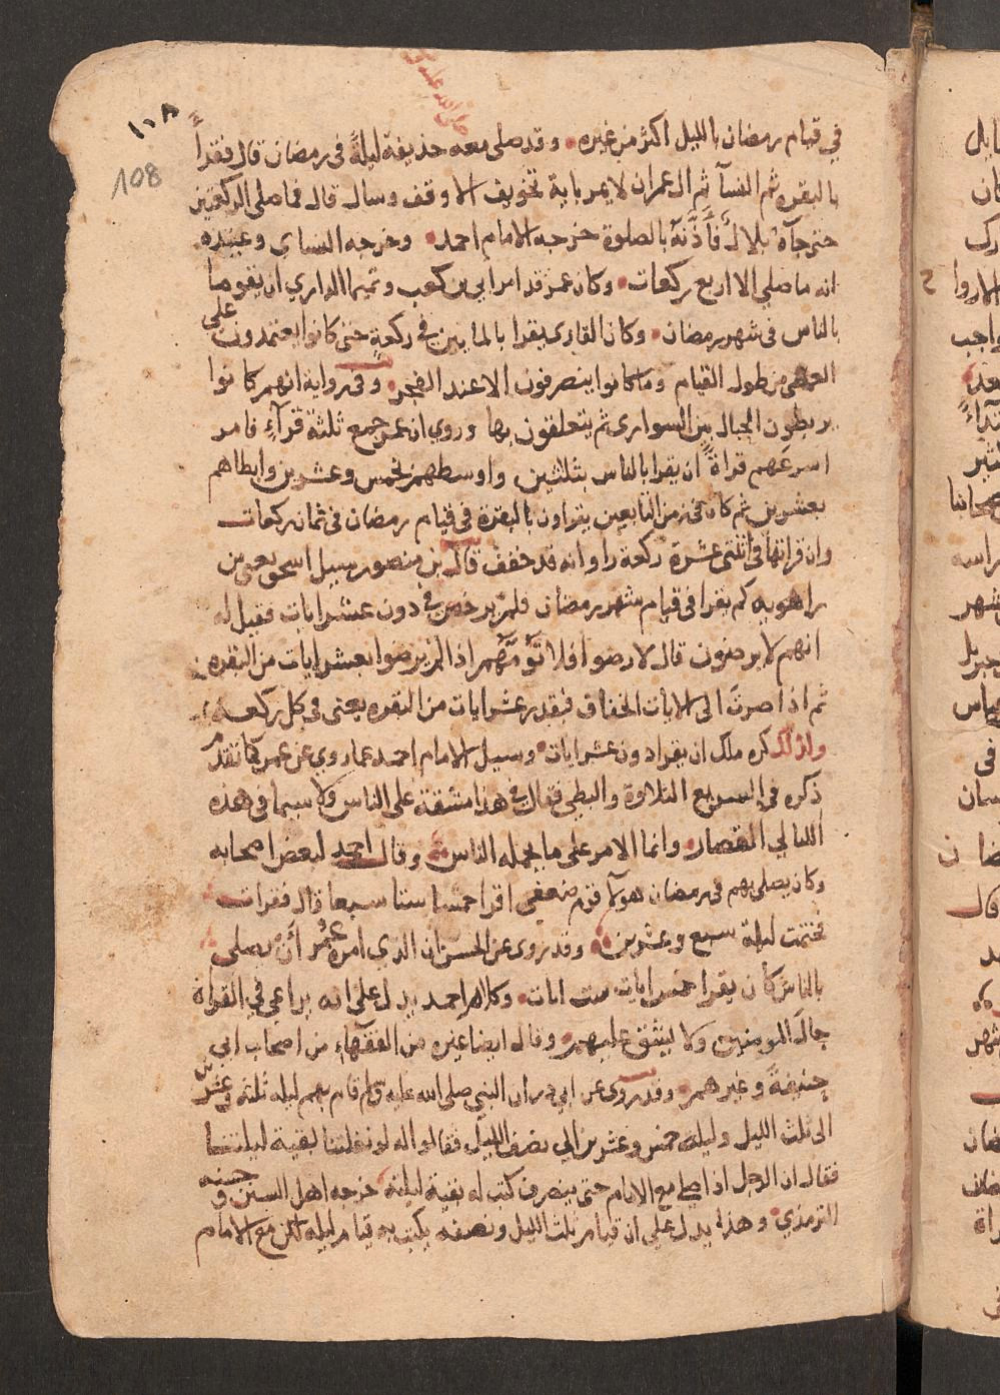 صلى الله عليه
١٠٨
108
في قيام رمضان بالليل اكثر من غيره وقد صلى معه حذيفة ليلةً في رمضان قال فقرأ
بالبقره ثم النسآ ثم ال عمران لا يمر باية تخويف الا وقف وسال قال فما صلى الركعتين
حتى جآه بلال فأذنه بالصلوة خرجه الامام احمد وخرجه النساى وعنده
انه ما صلى الا اربع ركعات وكان عمر قد امر ابي بن كعب وتميما الداري ان يقوما
بالناس في شهر رمضان وكان القارى يقرا بالمايين في ركعةٍ حتى كانوا يعتمدون على
العصى من طول القيام وما كانوا ينصرفون الا عند الفجر وفى رواية انهم كانوا
يربطون الحبال بين السوارى ثم يتعلقون بها وروي ان عمر جمع ثلثة قرآءٍ فامر
اسرعَهم قراةً ان يقرا بالناس بثلثين واوسطهم بخمس وعشرين وابطاهم
بعشرين ثم كان في زمن التابعين يقراون بالبقرة في قيام رمضان في ثمان ركعات
وان قراتها في اثنتى عشرة ركعة راوا انه قد خفف قال بن منصور سيل اسحق يعنى بن
راهويه كم يقرا في قيام شهر رمضان فلم يرخص في دون عشر ايات فقيل له
انهم لا يرضون قال لا رضوا فلا تَؤُمَّهم اذا لم يرضوا بعشر ايات من البقره
ثم اذا صرتَ الى الايات الخفاف فبقدر عشر ايات من البقره يعنى في كل ركعه
ولذلك كره ملك ان يقرا دون عشر ايات وسيل الامام احمد عما روي عن عمر كما تقدم
ذكره في السريع التلاوة والبطى فقال في هذا مشقة على الناس ولا سيما في هذه
الليالي القصار وانما الامر على ما يحمله الناس وقال احمد لبعض اصحابه
وكان يصلى بهم في رمضان هولآ قوم ضعفى اقرا خمسا ستا سبعا قال فقرات
فختمت ليلة سبع وعشرين وقد روى عن الحسن ان الذي امره عمر أن يصلى
بالناس كان يقرا خمس ايات ست ايات وكلام احمد يدل على انه يراعي في القراة
حالَ المومنين ولا يشق عليهم وقال ايضا غيره من الفقهآءِ من اصحاب ابي
حنيفةَ وغيرهم وقد روى عن ابي ذر ان النبي صلى الله عليه وسلم قام بهم ليله ثلثه وعشرين
الى ثلث الليل وليلة خمس وعشرين الي نصف الليل فقالوا له لو نفلتنا بقية ليلتنا
فقال ان الرجل اذا صلى مع الامام حتى ينصرف كتب له بقية ليلته خرجه اهل السنن وحسنه
الترمذي وهذا يدل على ان قيام ثلث الليل ونصفه يكتب به قيام ليله لكن مع الامام